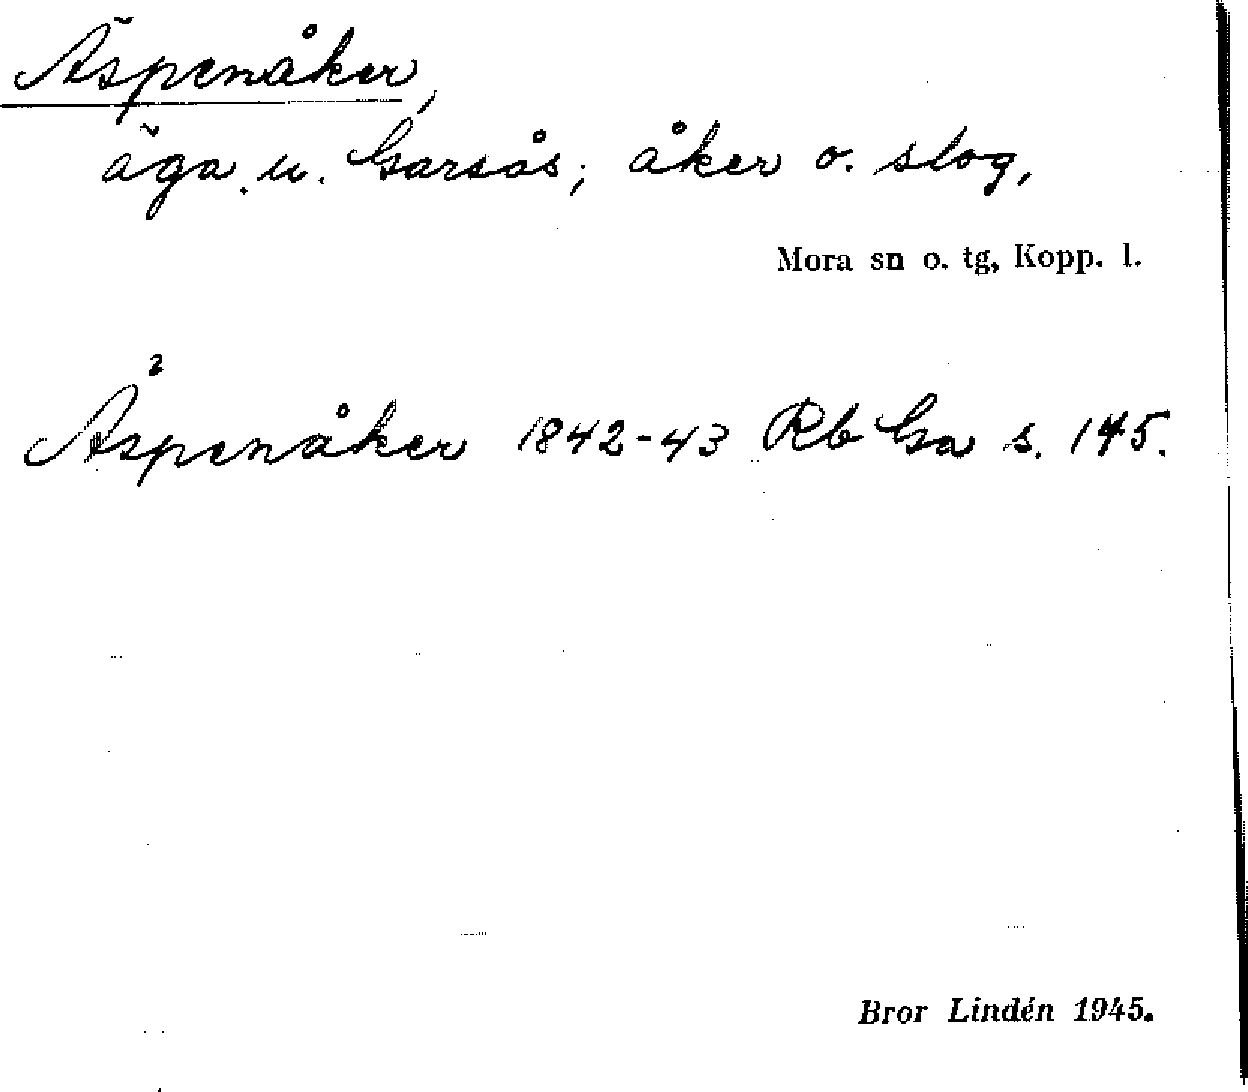 Äspenåker,
äga u. Garsås; åker o. slog,
Mora sn o. tg, Kopp. l.
Äspenåker 1842-43 Rb Ga s. 145.
Bror Lindén 1945.